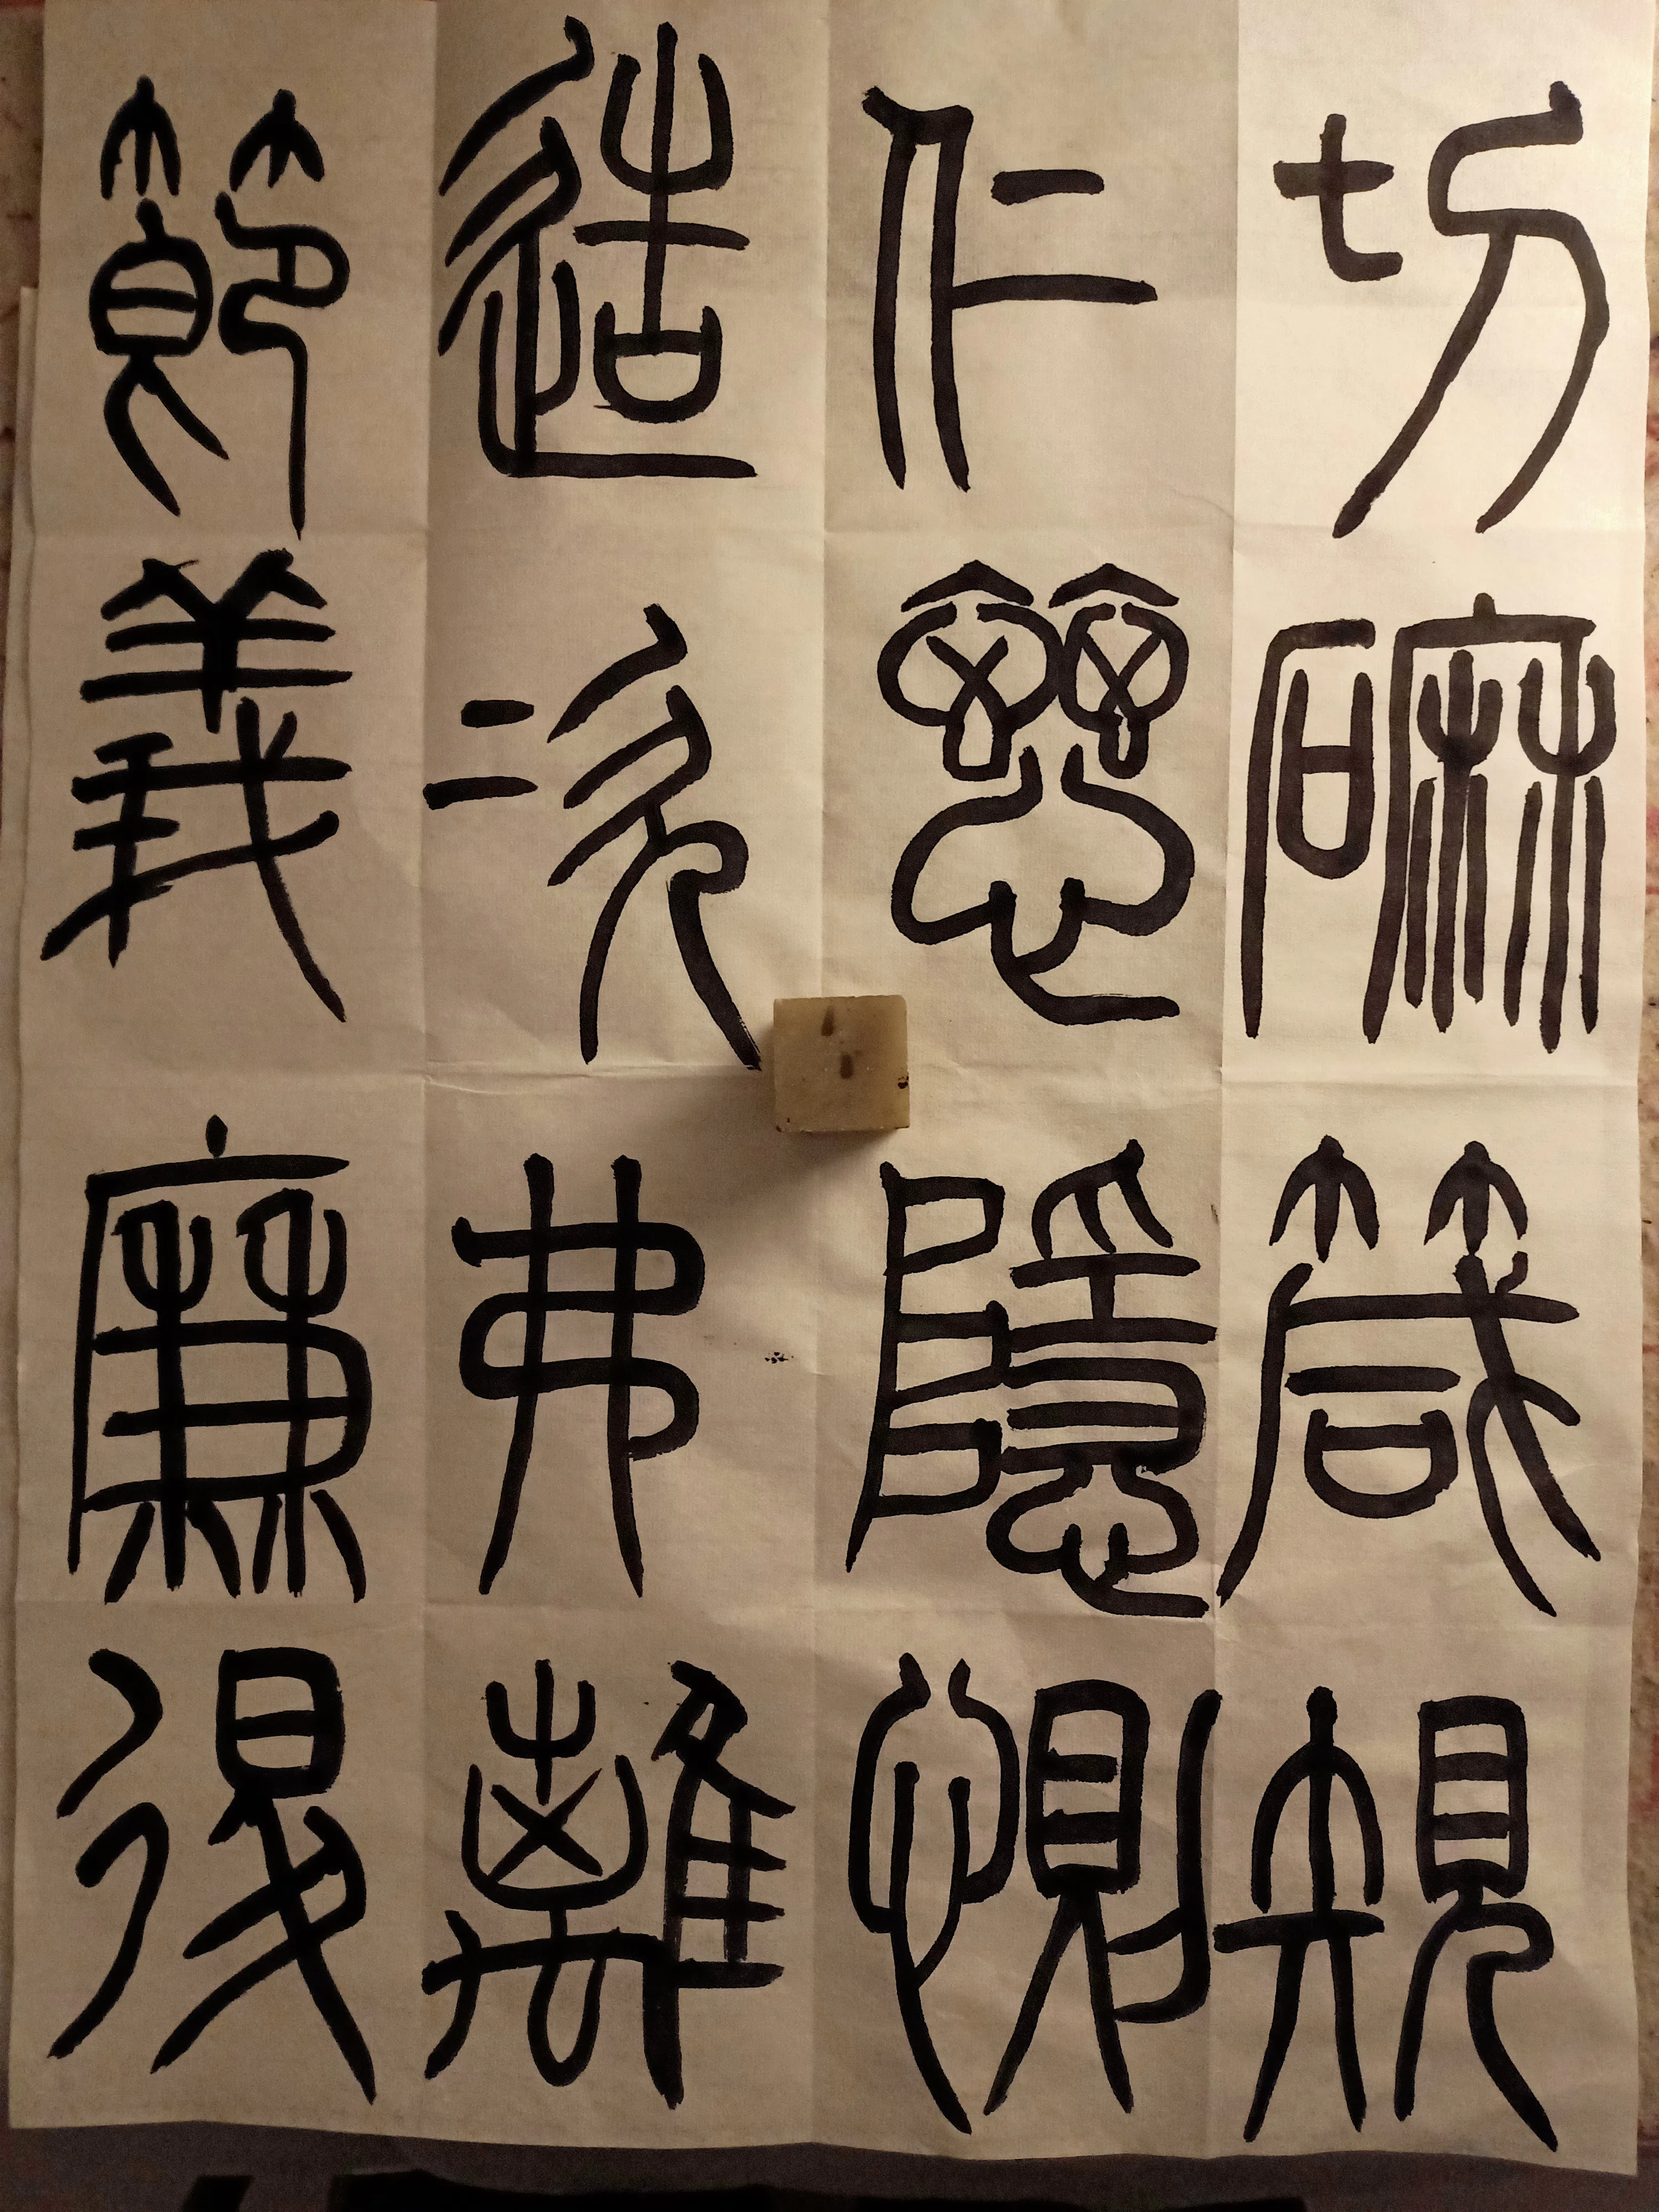 切磨箴規
仁慈隱惻
造次弗離
節義廉退